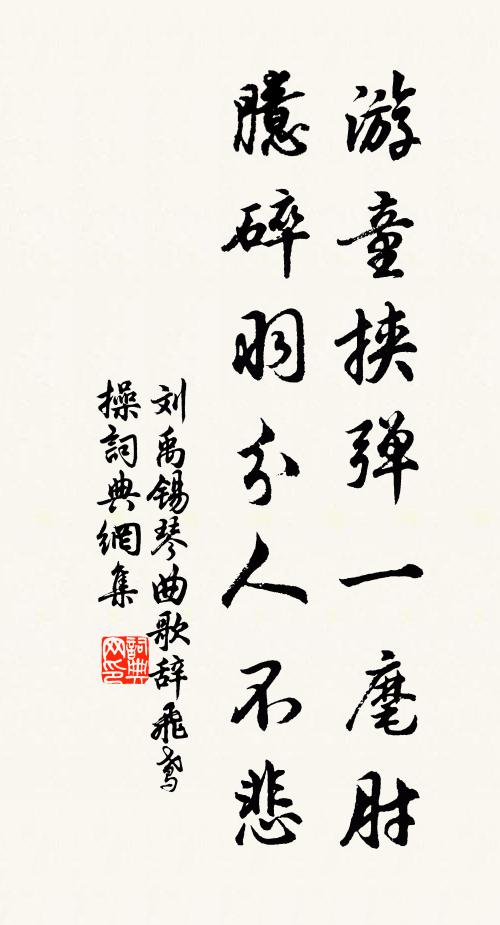 游童挟弹一麾肘
臆碎羽分人不悲
刘禹锡琴曲歌辞飛鸢
操詞典網集
詞典
网印